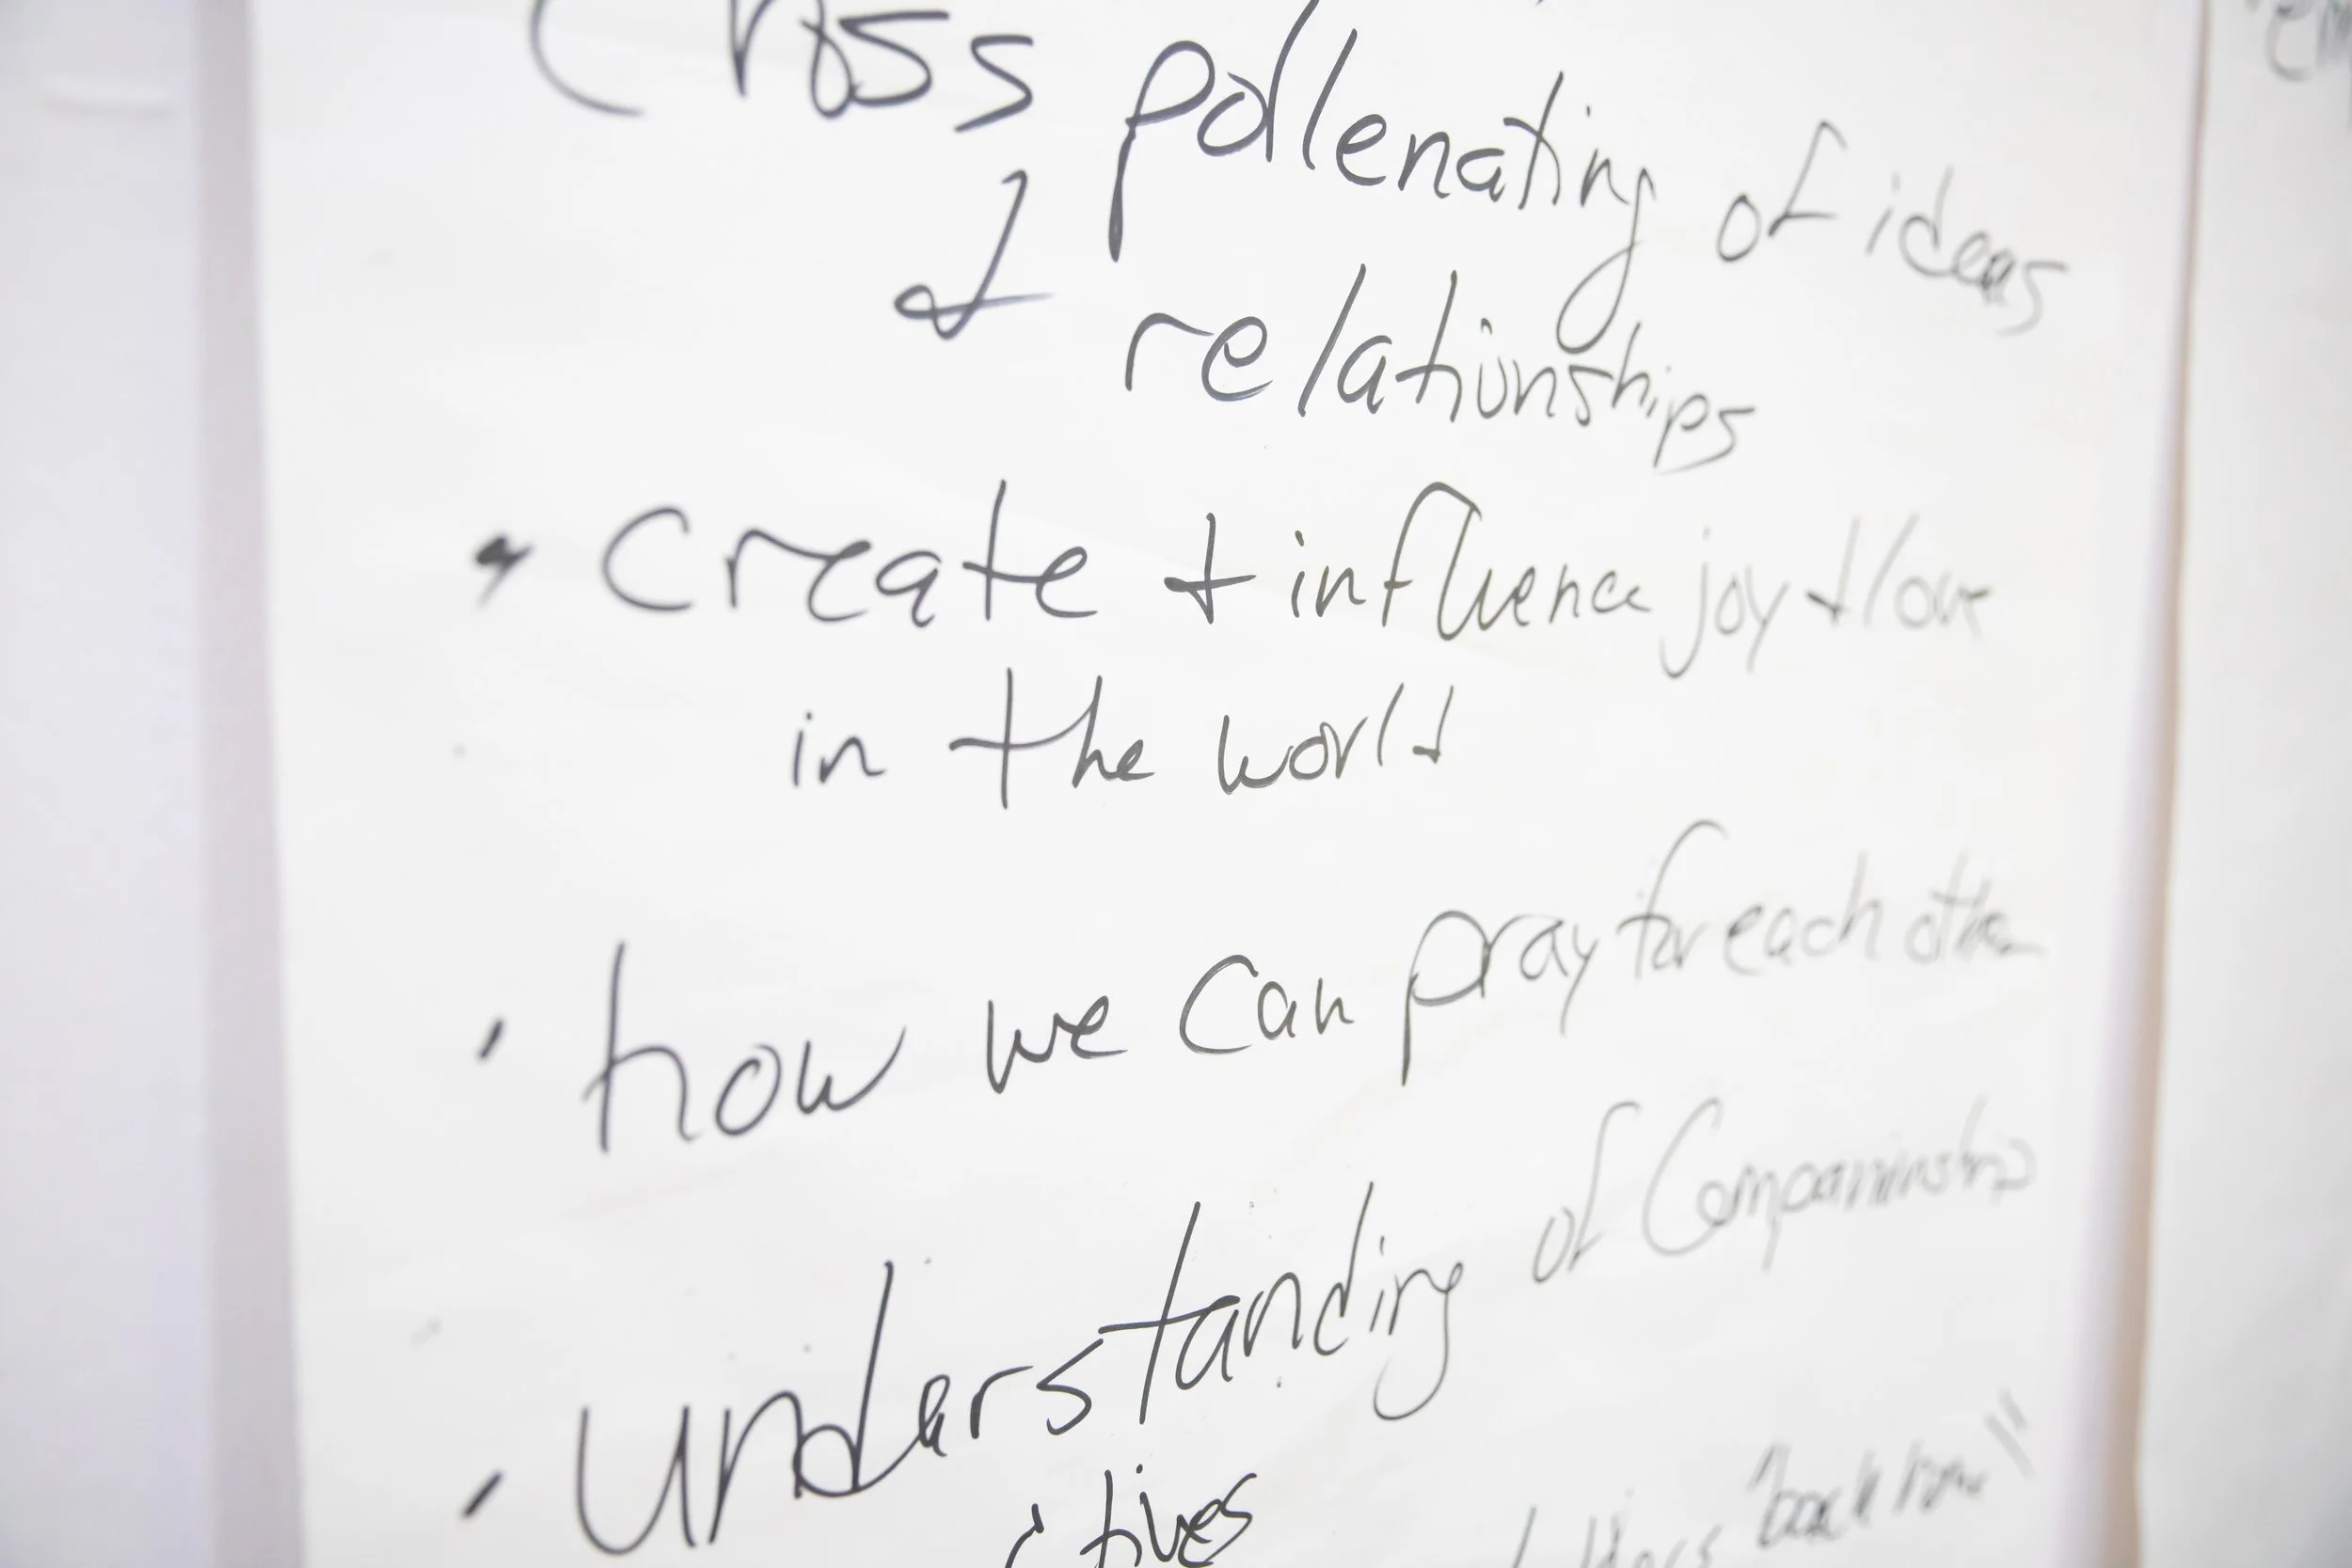 Cross pollenating of ideas
& relationships
• create + influence joy + love
in the world
• how we can pray for each other
• understanding of Companionship
"back home"